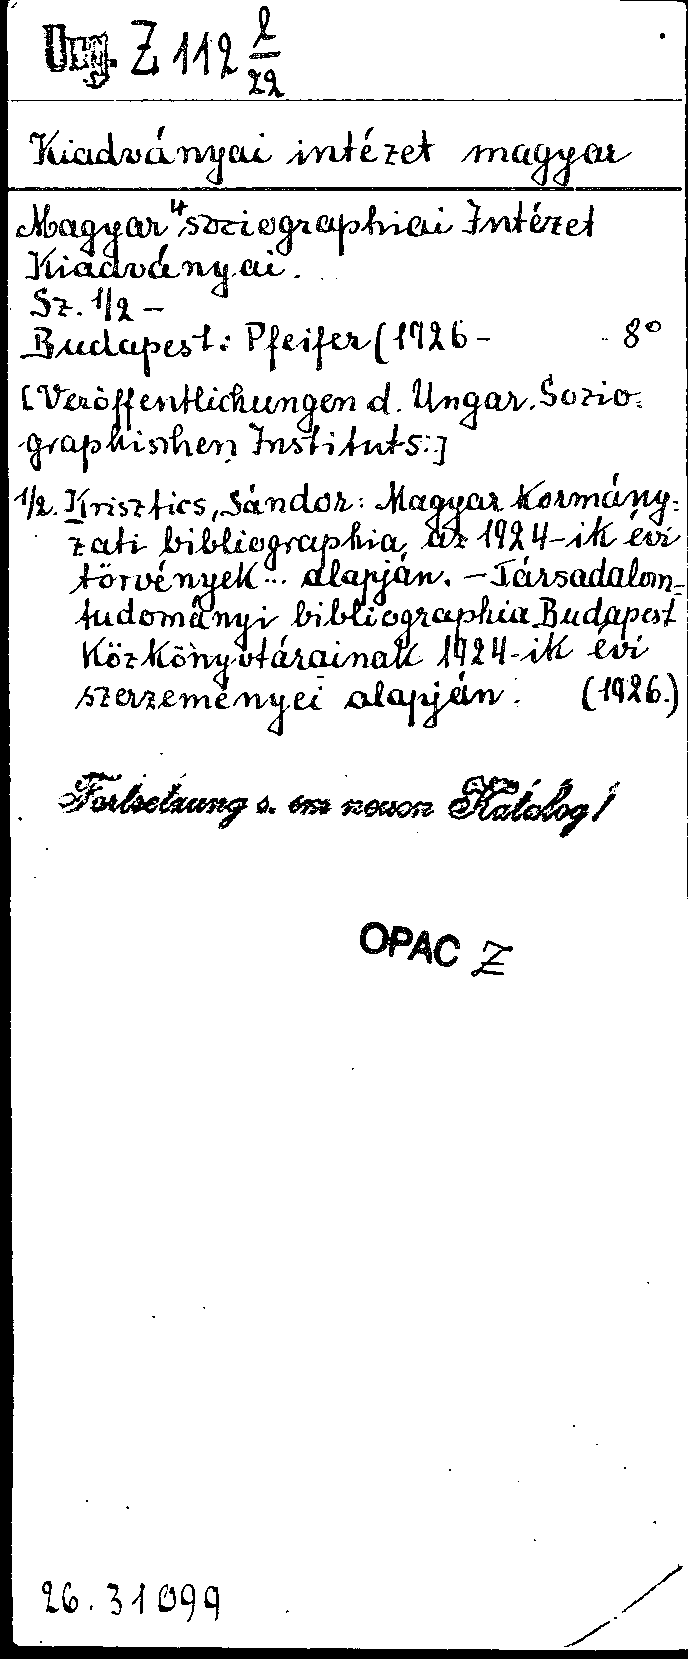 Ung. Z 112 2/22
Kiadványai intézet magyar
Magyar sociographiai Intézet
Kiadványai.
Sz. 1/2 –
Budapest: Pfeifer (1926 – 8°
[Veröffentlichungen d. Ungar. Sozio=
graphischen Instituts:]
1/2. Krisztics, Sándor: Magyar Kormány=
zati bibliographia, az 1924-ik évi
törvények ... alapján. – Társadalom=
tudományi bibliographia Budapest
Közkönyvtárainak 1924-ik évi
szerzeményei alapján. (1926.)
Fortsetzung s. im neuen Katalog!
OPAC Z
26.31099